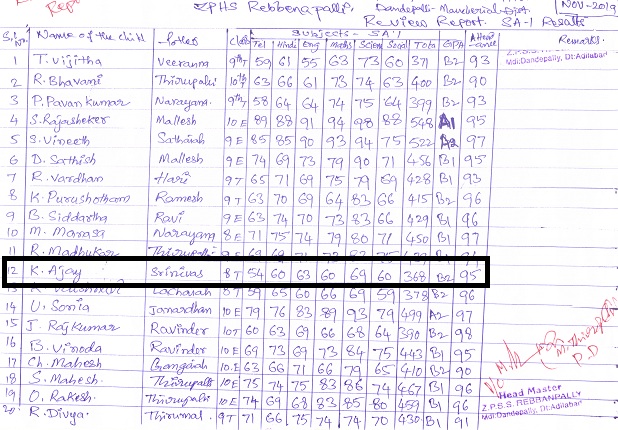 ZPHS Rebbenapally, Dandepally - Mancherial - Dist. NOV - 2019
Review Report. SA-1 Results
Subjects - SA-1
S.No Name of the child Father Class Tel Hindi Eng maths Scien Social Total GPA Attendance Remarks.
1 T. vijitha Veeranna 9th T 59 61 55 63 73 60 371 B2 93
2 R. Bhavani Thirupathi 10th T 63 66 61 73 74 63 400 B2 90
3 P. Pavan kumar Narayana 9th T 58 64 64 74 75 64 399 B2 93
4 S. Rajasheker Mallesh 10 E 89 88 91 94 98 88 548 A1 95
5 S. Vineeth Sathaiah 9 E 85 85 90 93 94 75 522 A2 97
6 D. Sathish Mallesh 9 E 74 69 73 79 90 71 456 B1 95
7 R. Vardhan Hari 9 T 65 71 69 75 79 69 428 B1 93
8 K. Purushotham Ramesh 9 T 63 70 69 64 83 66 415 B2 96
9 B. Siddartha Ravi 9 E 63 74 70 73 83 66 429 B1 96
10 M. Manasa Narayana 8 E 71 75 74 79 80 71 450 B1 97
11 R. Madhukar Thirupathi
12 K. Ajay Srinivas 8 T 54 60 63 60 69 60 368 B2 95
Lachaiah 8 T 59 65 60 66 69 59 378 B2 96
14 U. Sonia Janardhan 10 E 79 76 83 89 93 79 499 A2 97
15 J. Raj Kumar Ravinder 10 T 60 63 69 66 68 64 390 B2 98
16 B. Vinoda Ravinder 10 E 69 73 69 73 84 75 443 B1 95
17 Ch. Mahesh Gangaiah 10 E 63 66 71 66 79 65 410 B2 90
18 S. Mahesh. Thirupathi 10 E 75 74 75 83 86 74 467 B1 96
19 O. Rakesh. Thirupathi 10 E 74 69 68 83 85 80 459 B1 96
20 R. Divya. Thirumal 9 T 71 66 75 74 74 70 430 B1 91
Z.P.S.S. REBBANPALLY
Mdl:Dandepally, Dt:Adilabad
P.D
Head Master
Z.P.S.S. REBBANPALLY
Mdl:Dandepally, Dt:Adilabad